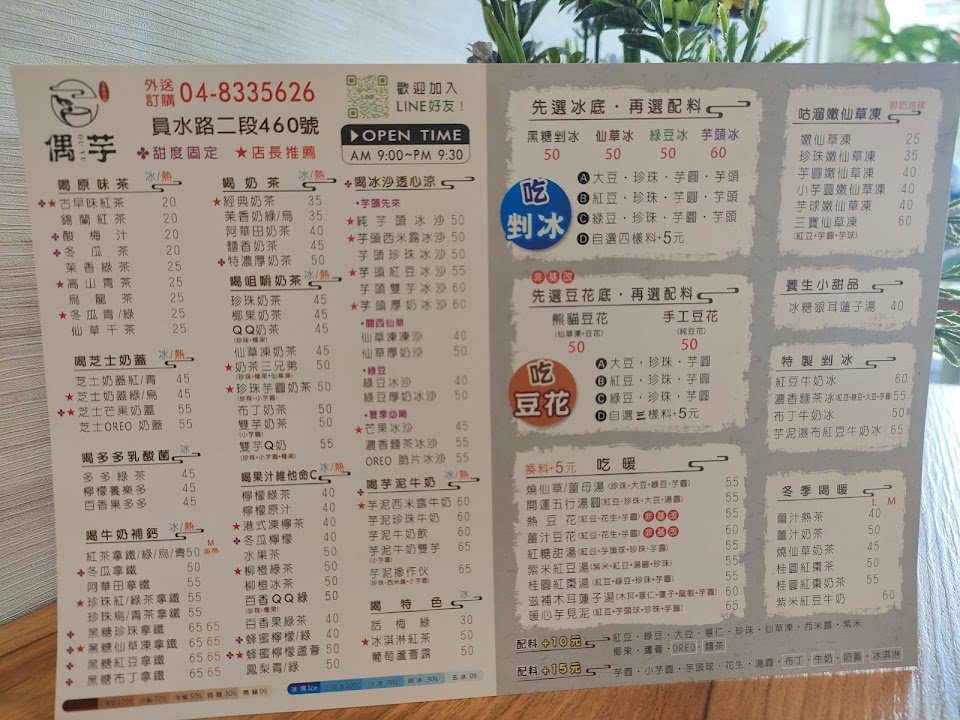 偶芋
外送
訂購 04-8335626
歡迎加入
LINE好友！
員水路二段460號
甜度固定 ★店長推薦
OPEN TIME
AM 9:00~PM 9:30
喝原味茶 冰/熱
★古早味紅茶 20
錫蘭紅茶 20
酸梅汁 20
冬瓜茶 20
茉香綠茶 25
★高山青茶 25
烏龍茶 25
★冬瓜青/綠 25
仙草干茶 25
喝芝士奶蓋 冰/熱
芝士奶蓋紅/青 45
★芝士奶蓋綠/烏 45
★芝士芒果奶蓋 55
芝士OREO奶蓋 55
喝多多乳酸菌 冰
多多綠茶 40
檸檬養樂多 45
百香果多多 45
喝牛奶補鈣 冰/熱
M
紅茶拿鐵/綠/烏/青 50
★冬瓜拿鐵 50
阿華田拿鐵 55
★珍珠紅/綠茶拿鐵 55
珍珠烏/青茶拿鐵 55
黑糖珍珠拿鐵 65 65
★黑糖仙草凍拿鐵 65 65
黑糖紅豆拿鐵 65 65
黑糖布丁拿鐵 65 65
喝奶茶 冰/熱
★經典奶茶 35
茉香奶綠/烏 35
阿華田奶茶 40
麵香奶茶 45
特濃厚奶茶 50
喝咀嚼奶茶 冰/熱
珍珠奶茶 45
椰果奶茶 45
QQ奶茶 45
(珍珠+椰果)
仙草凍奶茶 45
★奶茶三兄弟 50
(珍珠+椰果+仙草凍)
★珍珠芋圓奶茶 50
(珍珠+小芋圓)
布丁奶茶 50
雙芋奶茶 50
(小芋圓)
雙芋Q奶 55
(珍珠+小芋圓+椰果)
喝果汁維他命C 冰/熱
檸檬綠茶 40
檸檬原汁 40
★港式凍檸茶 40
★冬瓜檸檬 40
水果茶 50
★柳橙綠茶 50
柳橙冰茶 50
百香QQ綠 50
(珍珠+椰果)
百香果綠茶 40
★蜂蜜檸檬/綠 40
★蜂蜜檸檬蘆薈 50
鳳梨青/綠 50
喝冰沙透心涼
•芋頭先來
★純芋頭冰沙 50
★芋頭西米露冰沙 50
芋頭珍珠冰沙 50
★芋頭紅豆冰沙 55
芋頭厚奶冰沙 60
★芋頭厚芋冰沙 60
•關西仙草
仙草凍凍沙 40
仙草厚奶沙 50
•綠豆
綠豆冰沙 40
綠豆厚奶冰沙 50
•夏季必喝
★芒果冰沙 45
濃香麵茶冰沙 55
OREO 脆片冰沙 55
喝芋泥牛奶 冰/熱
★芋泥西米露牛奶 60
芋泥珍珠牛奶 60
芋泥牛奶飲 60
芋泥牛奶雙芋 65
(小芋圓)
芋泥摻作伙 65
(珍珠+西米露+小芋圓)
喝特色 冰
話梅綠 30
★冰淇淋紅茶 50
葡萄蘆薈露 50
先選冰底・再選配料
黑糖剉冰 仙草冰 綠豆冰 芋頭冰
50 50 50 60
吃
剉冰
A 大豆・珍珠・芋圓・芋頭
B 紅豆・珍珠・芋圓・芋頭
C 綠豆・珍珠・芋圓・芋頭
D 自選四樣料+5元
非基改
先選豆花底・再選配料
熊貓豆花 手工豆花
(仙草凍+豆花) (純豆花)
50 50
吃
豆花
A 大豆・珍珠・芋圓
B 紅豆・珍珠・芋圓
C 綠豆・珍珠・芋圓
D 自選三樣料+5元
換料+5元 吃暖
燒仙草/薑母湯(珍珠+大豆+綠豆+芋圓) 55
開運五行湯圓(紅豆+珍珠+大豆+湯圓) 55
熱豆花(紅豆+花生+芋圓) 非基改 55
薑汁豆花(紅豆+花生+芋圓) 非基改 60
紅糖甜湯(紅豆+芋頭球+珍珠+芋圓) 55
紫米紅豆湯(紫米+紅豆+湯圓+珍珠) 55
桂圓紅棗湯(紅豆+綠豆+珍珠+芋圓) 55
滋補木耳蓮子湯(木耳+薏仁+蓮子+龍眼+芋圓) 60
暖心芋見泥(紅豆+芋頭球+珍珠+芋圓) 60
配料 +10元 紅豆・綠豆・大豆・薏仁・珍珠・仙草凍・西米露・紫米
椰果・蘆薈・OREO・麵茶
配料 +15元 芋圓・小芋圓・芋頭球・花生・湯圓・布丁・牛奶・奶蓋・冰淇淋
咕溜嫩仙草凍
嫩仙草凍 25
珍珠嫩仙草凍 35
芋圓嫩仙草凍 40
小芋圓嫩仙草凍 40
芋球嫩仙草凍 40
三寶仙草凍 60
(紅豆+芋圓+芋球)
養生小甜品
冰糖銀耳蓮子湯 40
特製剉冰
紅豆牛奶冰 60
濃香麵茶冰(紅豆+綠豆+大豆+芋圓) 55
布丁牛奶冰 50
芋泥瀑布紅豆牛奶冰 65
冬季喝暖
L M
薑汁熱茶 40
薑汁奶茶 50
燒仙草奶茶 45
桂圓紅棗茶 50
桂圓紅棗奶茶 55
紫米紅豆牛奶 60